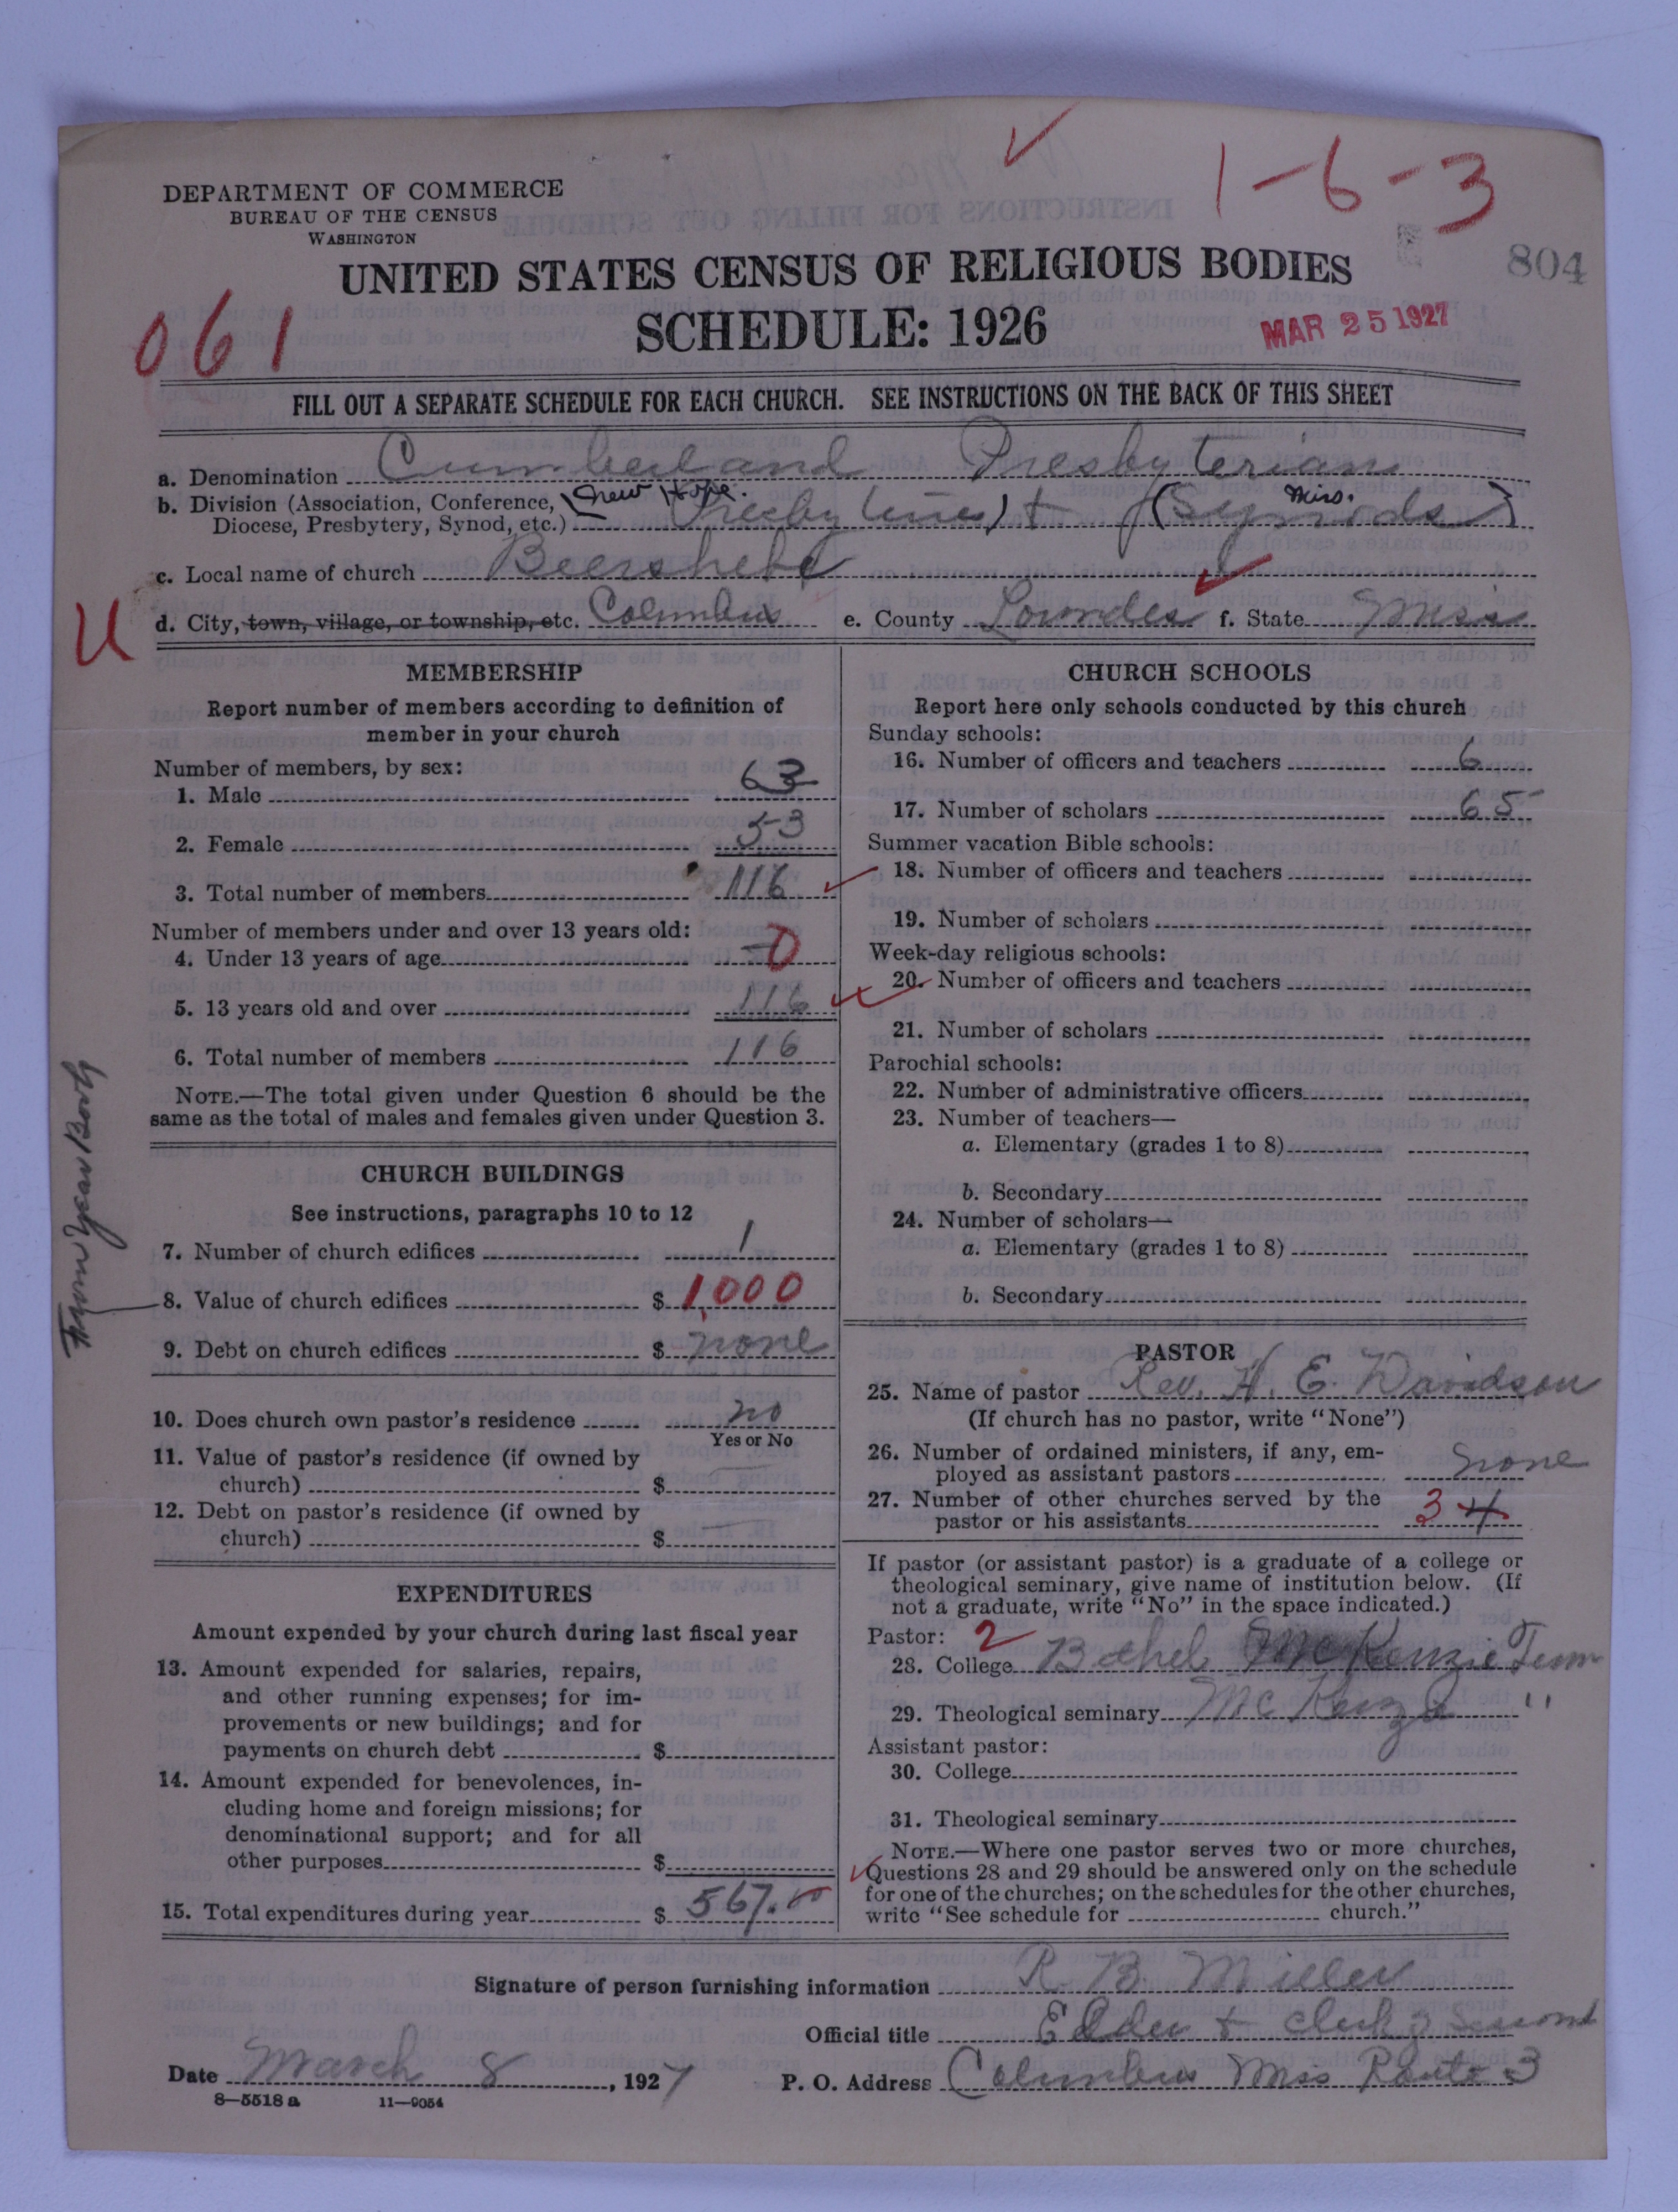 1-6-3
DEPARTMENT OF COMMERCE
BUREAU OF THE CENSUS
WASHINGTON
804
UNITED STATES CENSUS OF RELIGIOUS BODIES
061
SCHEDULE: 1926
MAR 25 1927
FILL OUT A SEPARATE SCHEDULE FOR EACH CHURCH. SEE INSTRUCTIONS ON THE BACK OF THIS SHEET
a. Denomination Cumberland Presbyterian
b. Division (Association, Conference, New Hope. Miss.
Diocese, Presbytery, Synod, etc.) + (Synods)
c. Local name of church Beersheba
U
d. City, town, village, or township, etc. Columbus e. County Lowndes f. State Miss
MEMBERSHIP
Report number of members according to definition of
member in your church
Number of members, by sex:
1. Male 63
2. Female 53
3. Total number of members 116
Number of members under and over 13 years old:
4. Under 13 years of age 0
5. 13 years old and over 116
6. Total number of members 116
NOTE.—The total given under Question 6 should be the
same as the total of males and females given under Question 3.
CHURCH BUILDINGS
See instructions, paragraphs 10 to 12
7. Number of church edifices 1
From Year Book
8. Value of church edifices $ 1,000
9. Debt on church edifices $ none
10. Does church own pastor's residence no
Yes or No
11. Value of pastor's residence (if owned by
church) $
12. Debt on pastor's residence (if owned by
church) $
EXPENDITURES
Amount expended by your church during last fiscal year
13. Amount expended for salaries, repairs,
and other running expenses; for im-
provements or new buildings; and for
payments on church debt $
14. Amount expended for benevolences, in-
cluding home and foreign missions; for
denominational support; and for all
other purposes $
15. Total expenditures during year $ 567.00
CHURCH SCHOOLS
Report here only schools conducted by this church
Sunday schools:
16. Number of officers and teachers 6
17. Number of scholars 65
Summer vacation Bible schools:
18. Number of officers and teachers
19. Number of scholars
Week-day religious schools:
20. Number of officers and teachers
21. Number of scholars
Parochial schools:
22. Number of administrative officers
23. Number of teachers—
a. Elementary (grades 1 to 8)
b. Secondary
24. Number of scholars—
a. Elementary (grades 1 to 8)
b. Secondary
PASTOR
25. Name of pastor Rev. H. E. Davidson
(If church has no pastor, write "None")
26. Number of ordained ministers, if any, em-
ployed as assistant pastors none
27. Number of other churches served by the
pastor or his assistants 3 4
If pastor (or assistant pastor) is a graduate of a college or
theological seminary, give name of institution below. (If
not a graduate, write "No" in the space indicated.)
Pastor: 2
28. College Bethel McKenzie Tenn
29. Theological seminary McKenzie "
Assistant pastor:
30. College
31. Theological seminary
NOTE.—Where one pastor serves two or more churches,
Questions 28 and 29 should be answered only on the schedule
for one of the churches; on the schedules for the other churches,
write "See schedule for church."
Signature of person furnishing information R. B. Miller
Official title Elder + clerk of
Date March 8, 1927 P. O. Address Columbus Miss Route 3
8—5518a 11—9054